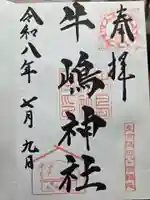 奉拝
牛嶋神社
令和八年七月九日